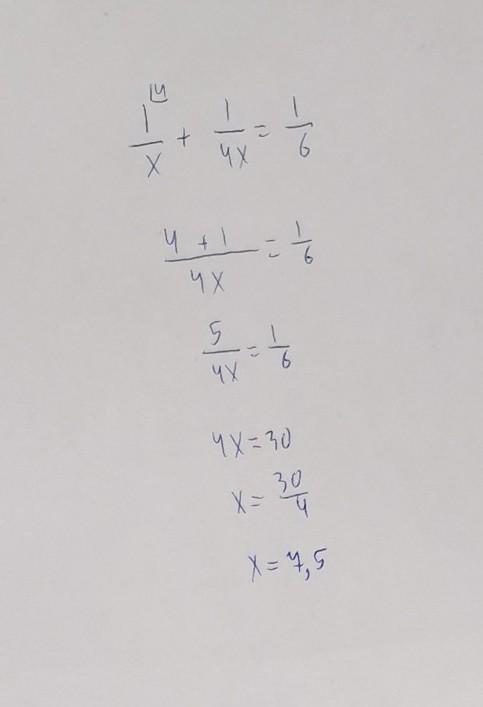 1/x ⁴ + 1/4x = 1/6
4 + 1/4x = 1/6
5/4x = 1/6
4x = 30
x = 30/4
x = 7,5